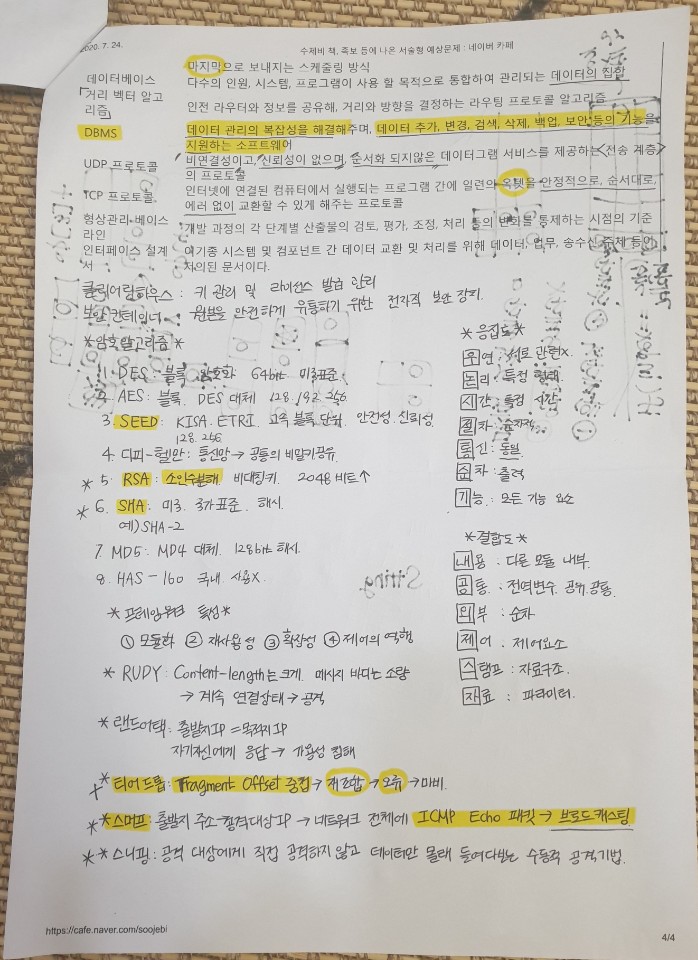 2020. 7. 24.
수제비 책, 족보 등에 나온 서술형 예상문제 : 네이버 카페
마지막으로 보내지는 스케줄링 방식
데이터베이스 다수의 인원, 시스템, 프로그램이 사용 할 목적으로 통합하여 관리되는 데이터의 집합
거리 벡터 알고리즘 인전 라우터와 정보를 공유해, 거리와 방향을 결정하는 라우팅 프로토콜 알고리즘
DBMS 데이터 관리의 복잡성을 해결해주며, 데이터 추가, 변경, 검색, 삭제, 백업, 보안 등의 기능을
지원하는 소프트웨어
UDP 프로토콜 비연결성이고, 신뢰성이 없으며, 순서화 되지않은 데이터그램 서비스를 제공하는 <전송 계층>
의 프로토콜
TCP 프로토콜 인터넷에 연결된 컴퓨터에서 실행되는 프로그램 간에 일련의 옥텟을 안정적으로, 순서대로,
에러 없이 교환할 수 있게 해주는 프로토콜
형상관리 베이스라인 개발 과정의 각 단계별 산출물의 검토, 평가, 조정, 처리 등의 변화를 통제하는 시점의 기준
인터페이스 설계서 여기종 시스템 및 컴포넌트 간 데이터 교환 및 처리를 위해 데이터, 업무, 송수신 주체 등이
정의된 문서이다.
클리어링하우스 : 키 관리 및 라이선스 발급 관리
보안 컨테이너 : 원본을 안전하게 유통하기 위한 전자적 보안 장치.
*암호알고리즘*
1. DES : 블록 암호화 64bit 미국표준
2. AES : 블록. DES 대체 128. 192. 256
3. SEED : KISA. ETRI. 고속 블록 단위 안전성. 신뢰성.
128. 256
4. 디피-헬만 : 통신망 → 공통의 비밀키공유.
* 5. RSA : 소인수분해 비대칭키. 2048 비트↑
* 6. SHA : 미국. 국가표준. 해시.
예) SHA-2
7. MD5 : MD4 대체. 128bit 해시.
8. HAS-160 국내. 사용X.
String
*프레임워크 특성*
① 모듈화 ② 재사용성 ③ 확장성 ④ 제어의 역행
* RUDY : Content-length는 크게. 메시지 바디는 소량
→ 계속 연결상태 → 공격
*랜드어택 : 출발지IP = 목적지IP
자기자신에게 응답 → 가용성 침해
*응집도*
우연 : 서로 관련X.
논리 : 특정 형태.
시간 : 특정 시간.
절차 : 순차적.
통신 : 동일
순차 : 출력
기능 : 모든 기능 요소
*결합도*
내용 : 다른 모듈 내부.
공통 : 전역변수. 공유. 공통.
외부 : 순차
제어 : 제어요소
스탬프 : 자료구조.
자료 : 파라미터.
** 티어드롭 : Fragment Offset 중첩 → 재조합 → 오류 → 마비.
** 스머프 : 출발지 주소 → 공격대상IP → 네트워크 전체에 ICMP Echo 패킷 → 브로드캐스팅
** 스니핑 : 공격 대상에게 직접 공격하지 않고 데이터만 몰래 들여다보는 수동적 공격기법.
https://cafe.naver.com/soojebi
4/4